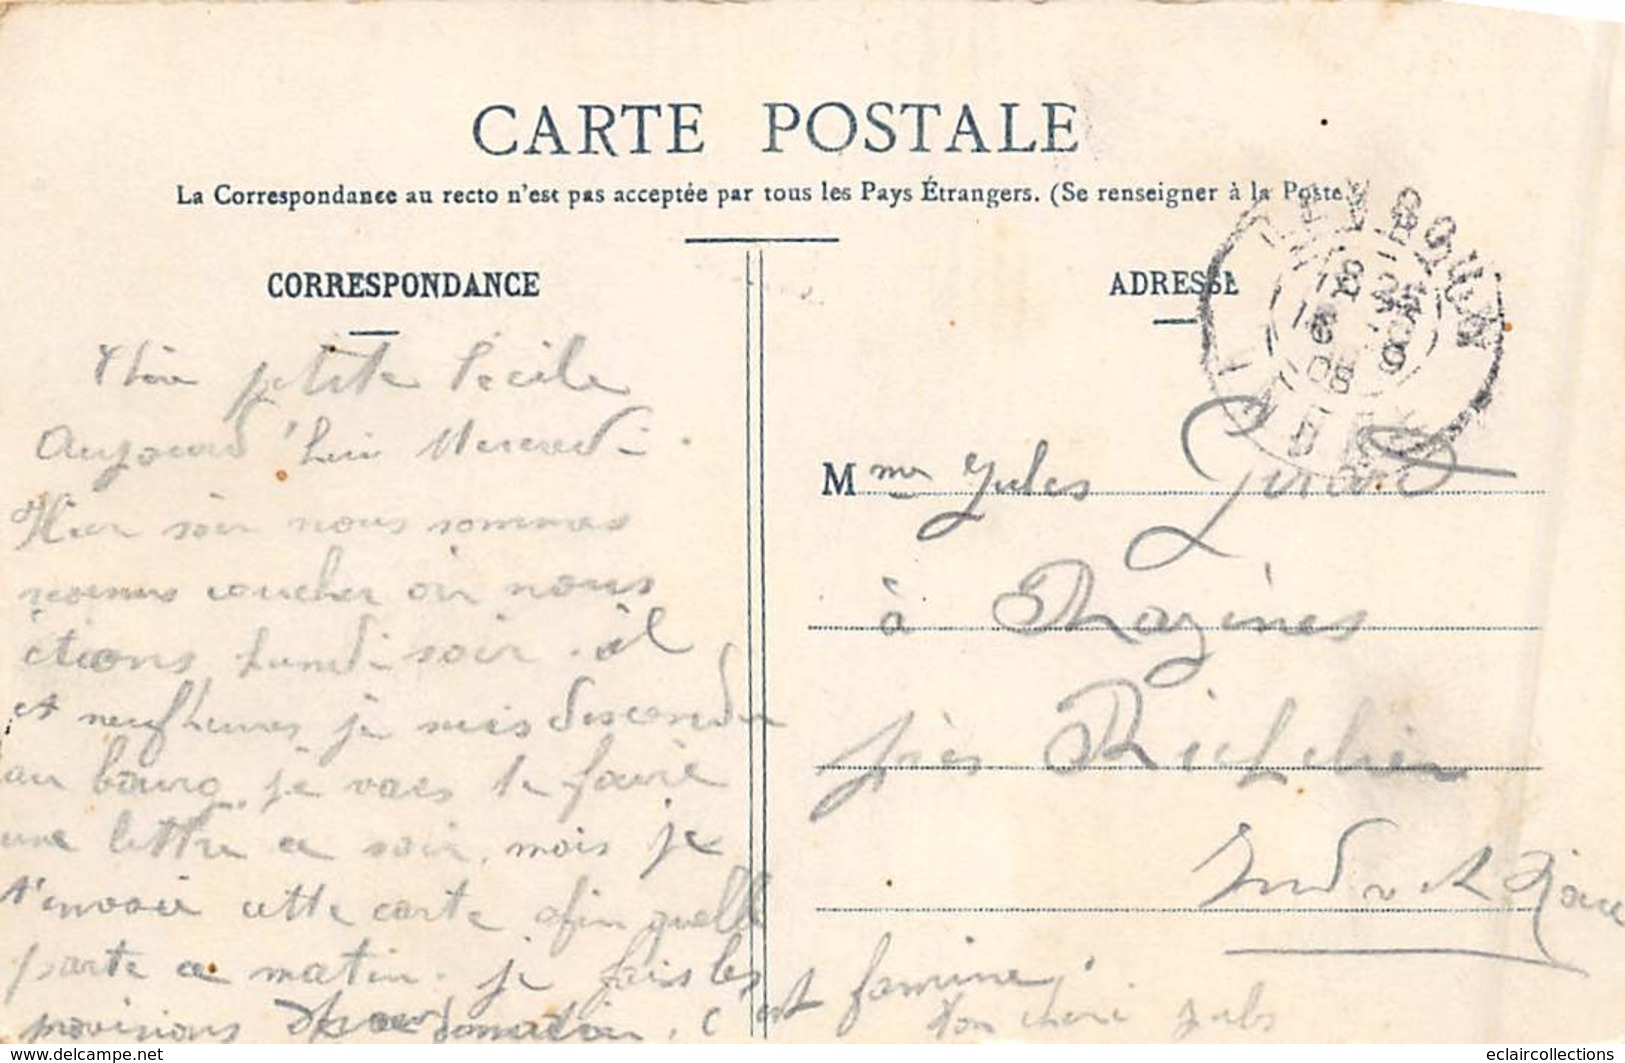 CARTE POSTALE
La Correspondance au recto n'est pas acceptée par tous les Pays Étrangers. (Se renseigner à la Poste)
CORRESPONDANCE
Chère petite Cécile
Aujourd'hui Mercredi.
Hier soir nous sommes
revenus coucher où nous
étions Lundi soir. il
et neuf heures je suis descendu
au bourg, je vais te faire
une lettre ce soir, mais je
t'envoie cette carte afin quelle
parte ce matin. je fais les
provisions c'est famine.
Ton cheri Jules
ADRESSE
Mme Jules Girard
à Razines
près Richelieu
Indre et Loire
www.delcampe.net
eclaircollections